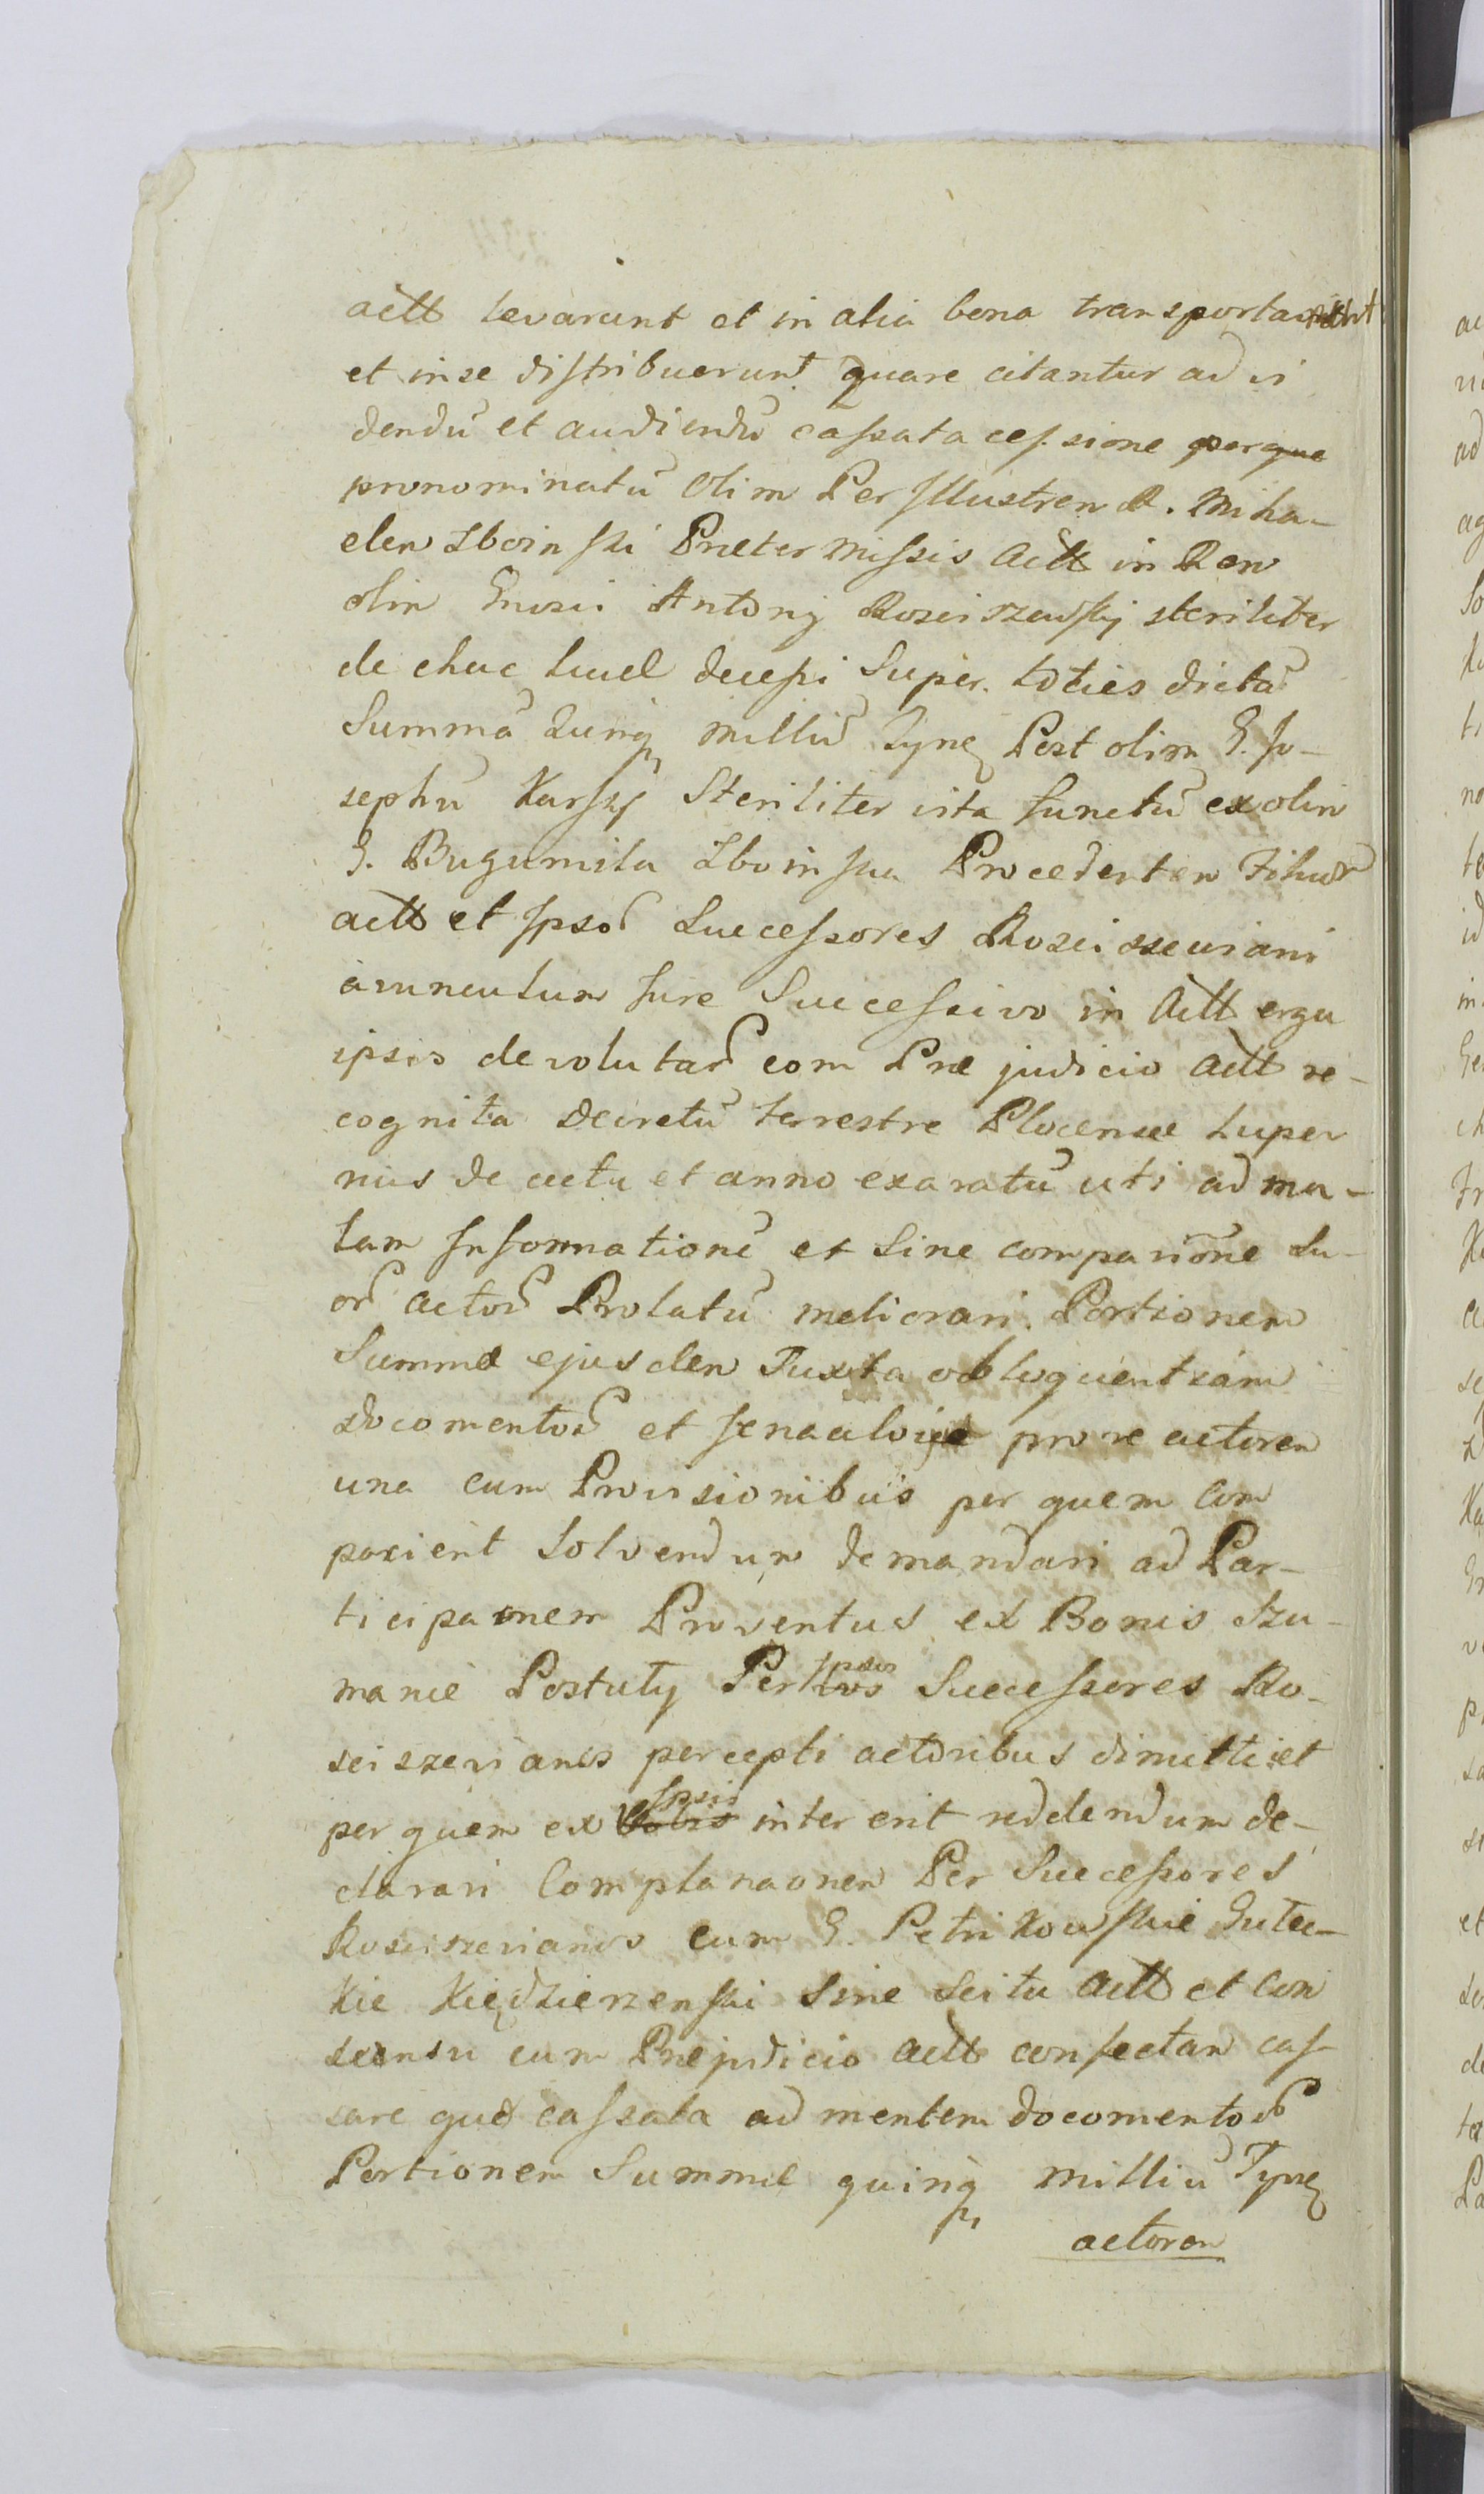 actt levarunt et in alia bona transportarunt
et in se distribuerunt quare citantur ad vi
dendū et audiendū cassata cessione perque
pronominatū olim Per Illustrem D. Micha-
elem Zboinski Prætermissis Actt in Rem
olim Gnrosi Antonj Rosciszewskj steriliter
de ehac luce decessi Super toties dictā
Summā Quinq millīu Tynf Post olim G. Jo-
sephū Karskj Steriliter vita functū ex olim
G. Bugumila Zboinska Procedentem
actt et Ipsor Successores Rosciszewiani
avunculum Jure Successivo in Actt ergu
ipsos devolutar com Præjudicio Actt re-
cognita Decretū terrestre Plocense Super
nius de actu et anno exaratū uti ad ma-
lam Informationē et Sine comparitione Su-
or actor Prolatū meliorari. Portionem
Summæ ejusdem Juxta obloquentiam
Documentor et Jenaaloige pro re actorem
una cum Provisionibus per quem Com
parient Solvendum demandari ad Par-
ticipaonem Proventus ex Bonis Szu-
manie Postuty Per Ipsos Successores Ro-
sciszewianos percepti actoribus dimitti et
per quem ex Ipsis inter erit reddendum de-
clarari Complanaonem Per Successores
Rosciszewianos cum G. Petrikowskie Gutec-
kie Kiędzierzenski Sine Scitu Actt et Con
sensu cum Præjudicio Actt confectam cas-
sare quæ cassata ad mentem documentor
Portionem Summæ quinq milliū Tynf
actorem